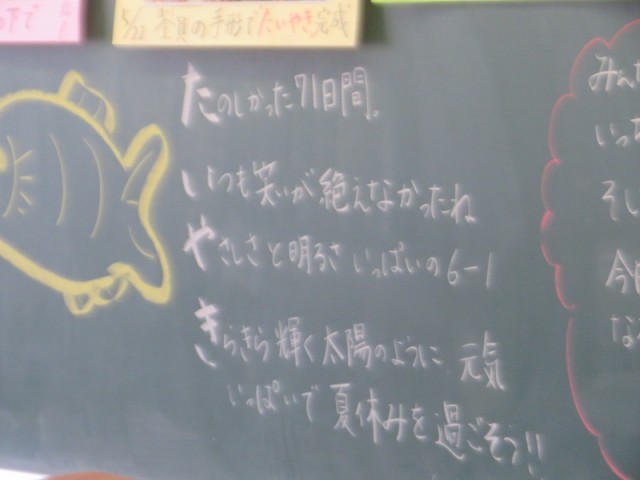 の下で
5/22 全員の手形でたいやき完成
たのしかった71日間。
いつも笑いが絶えなかったね
やさしさと明るさいっぱいの6-1
きらきら輝く太陽のように 元気
いっぱいで夏休みを過ごそう!!
みん
いっ
そし
今
な